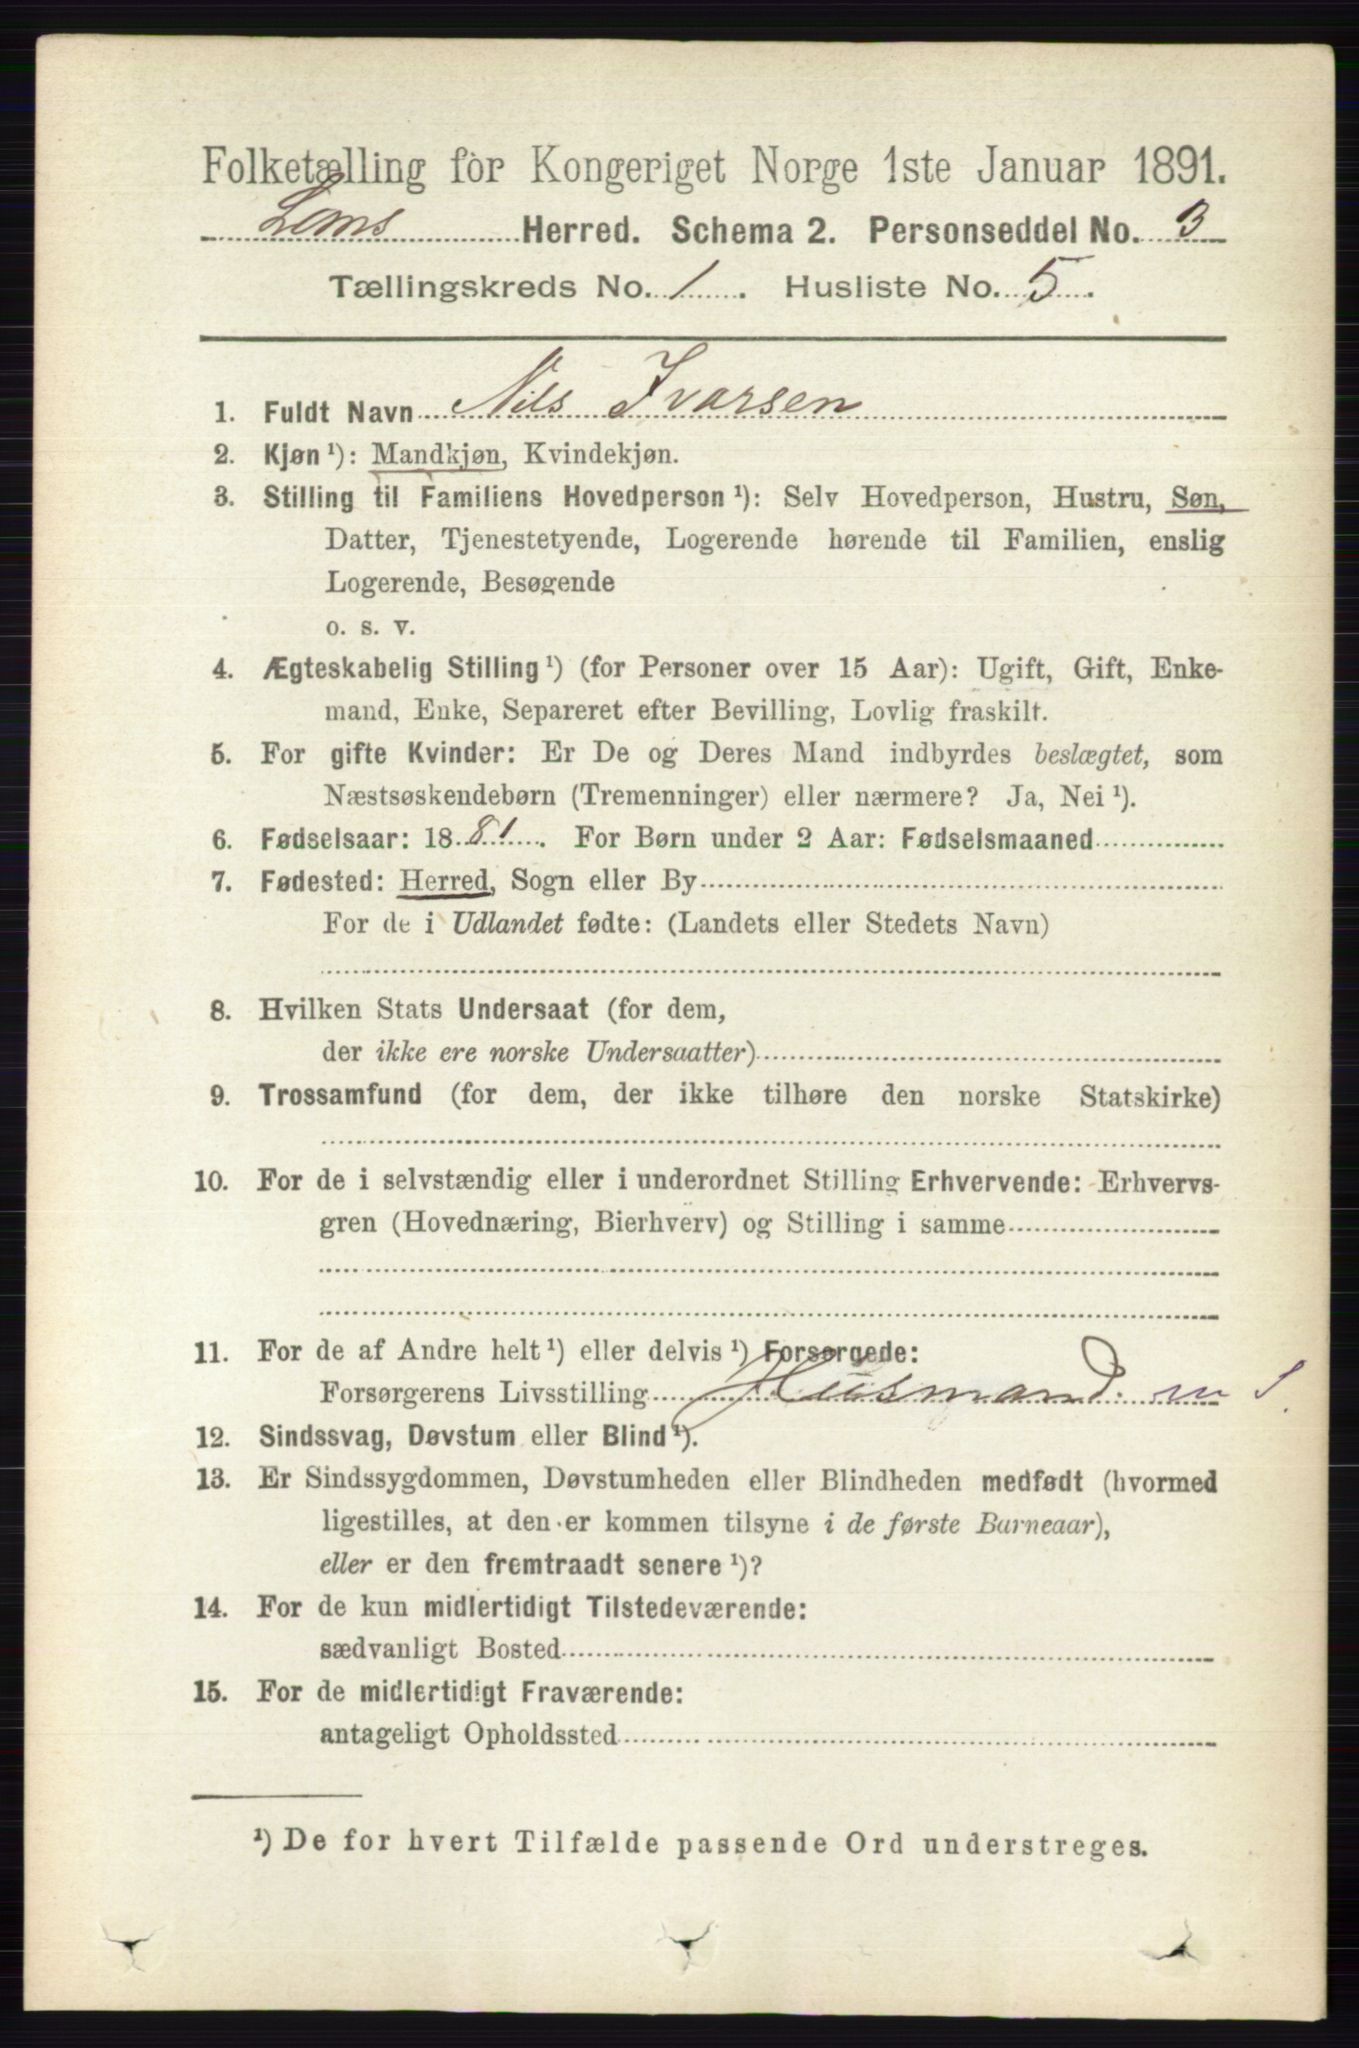 Folketælling for Kongeriget Norge 1ste Januar 1891.
Loms Herred. Schema 2. Personseddel No. 3
Tællingskreds No. 1. Husliste No. 5.
1. Fuldt Navn Nils Ivarsen
2. Kjøn ¹): Mandkjøn, Kvindekjøn.
3. Stilling til Familiens Hovedperson ¹): Selv Hovedperson, Hustru, Søn,
Datter, Tjenestetyende, Logerende hørende til Familien, enslig
Logerende, Besøgende
o. s. v.
4. Ægteskabelig Stilling ¹) (for Personer over 15 Aar): Ugift, Gift, Enke-
mand, Enke, Separeret efter Bevilling, Lovlig fraskilt.
5. For gifte Kvinder: Er De og Deres Mand indbyrdes beslægtet, som
Næstsøskendebørn (Tremenninger) eller nærmere? Ja, Nei ¹).
6. Fødselsaar: 1881. For Børn under 2 Aar: Fødselsmaaned
7. Fødested: Herred, Sogn eller By
For de i Udlandet fødte: (Landets eller Stedets Navn)
8. Hvilken Stats Undersaat (for dem,
der ikke ere norske Undersaatter)
9. Trossamfund (for dem, der ikke tilhøre den norske Statskirke)
10. For de i selvstændig eller i underordnet Stilling Erhvervende: Erhvervs-
gren (Hovednæring, Bierhverv) og Stilling i samme
11. For de af Andre helt ¹) eller delvis ¹) Forsørgede:
Forsørgerens Livsstilling Husmand m J.
12. Sindssvag, Døvstum eller Blind ¹).
13. Er Sindssygdommen, Døvstumheden eller Blindheden medfødt (hvormed
ligestilles, at den er kommen tilsyne i de første Barneaar),
eller er den fremtraadt senere ¹)?
14. For de kun midlertidigt Tilstedeværende:
sædvanligt Bosted
15. For de midlertidigt Fraværende:
antageligt Opholdssted
¹) De for hvert Tilfælde passende Ord understreges.